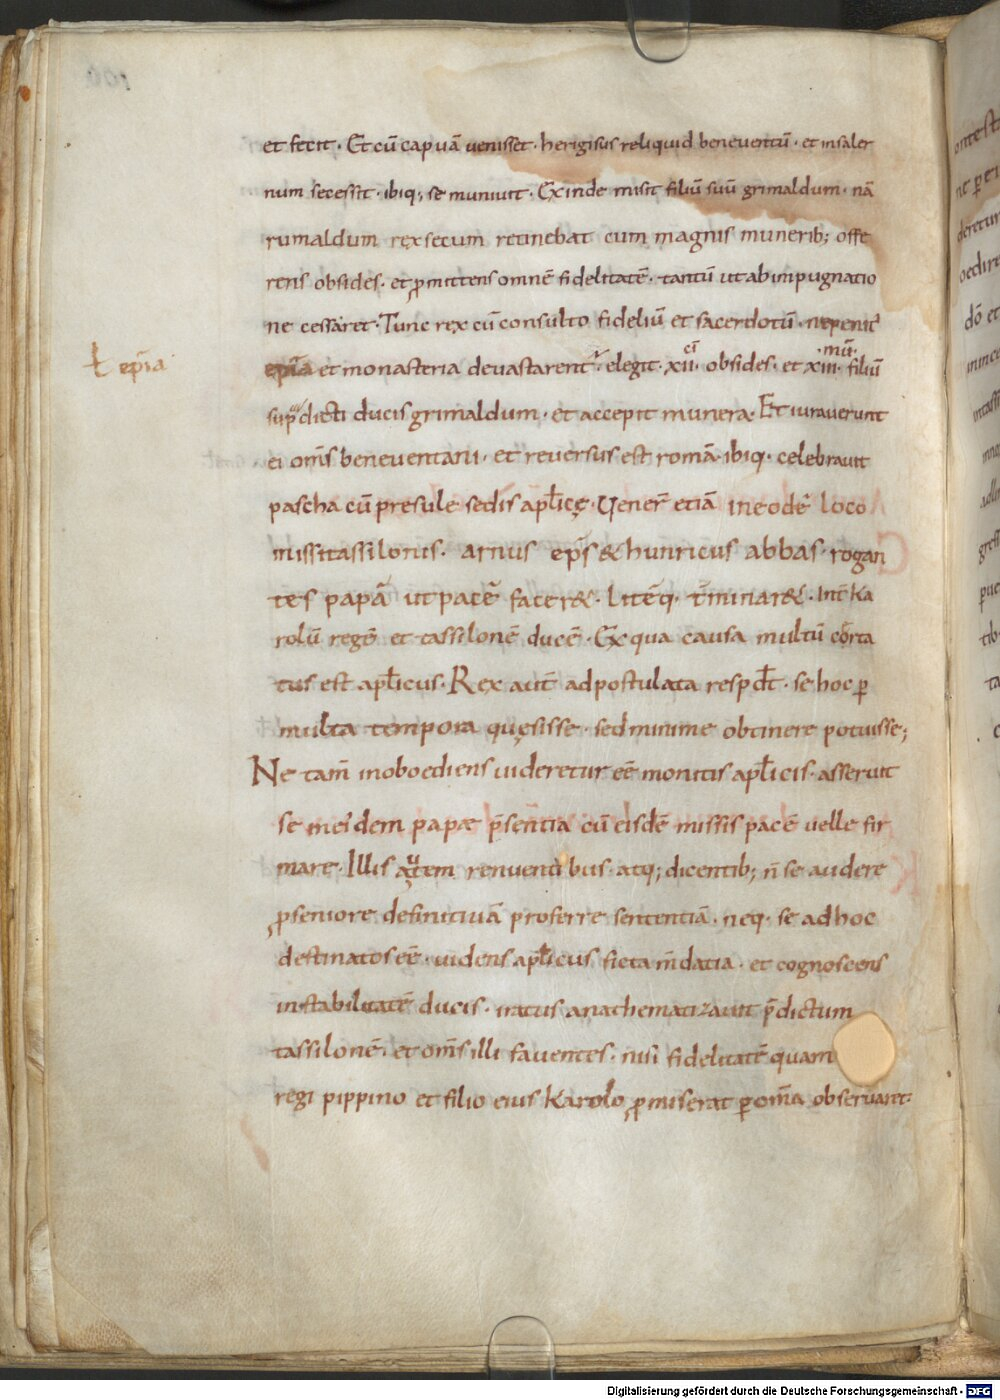 et fecit · Et cū capuā venisset · herigisus reliquid beneventū · et insaler
num secessit · ibiq; se muniuit · Exinde misit filiū suū grimaldum · nā
rumaldum rex secum retinebat cum magnis munerib; offe
rens obsides · et ꝓmittens omnē fidelitatē · tantū ut ab impugnatio
ne cessaret · Tunc rex cū consulto fideliū et sacerdotū · ne penit᾿
ł ep̄ia
ep̄ia et monasteria deuastarent᾿ · elegit · xii · obsides · et xiii · filiū
ci mū
sup̄dicti ducis grimaldum · et accepit munera · Et iurauerunt
ei om̄s beneventani · et reuersus est romā · ibiq · celebrauit
pascha cū presule sedis apl̄icę · Vener̄ etiā in eodē loco
missi tassilonis · arnus ep̄s & hunricus abbas · rogan
tes papā ut pacē facer& · Litēq · t̄minar& · Int̄ Ka
rolū regē et tassilonē ducē · Ex qua causa multū corta
tus est apl̄icus · Rex aut̄ ad postulata respōt · se hoc ꝑ
multa tempora quęsisse · sed minime obtinere potuisse;
Ne tam̄ inoboediens uideretur eē monitis apl̄icis · asseruit
se in eidem papae p̄sentia cū eisdē missis pacē uelle fir
mare · Illis autem renuentibus · atq; dicentib; n̄ se audere
ꝓ seniore definitiuā proferre sententiā · neq · se ad hoc
destinatos eē · uidens apl̄icus ficta m̄datia · et cognoscens
instabilitatē ducis · iratus anathematizauit p̄dictum
tassilonē · et om̄s illi fauentes · nisi fidelitatē quam
regi pippino et filio eius Karolo ꝓmiserat ꝑ om̄ia obseruaret·
Digitalisierung gefördert durch die Deutsche Forschungsgemeinschaft - DFG